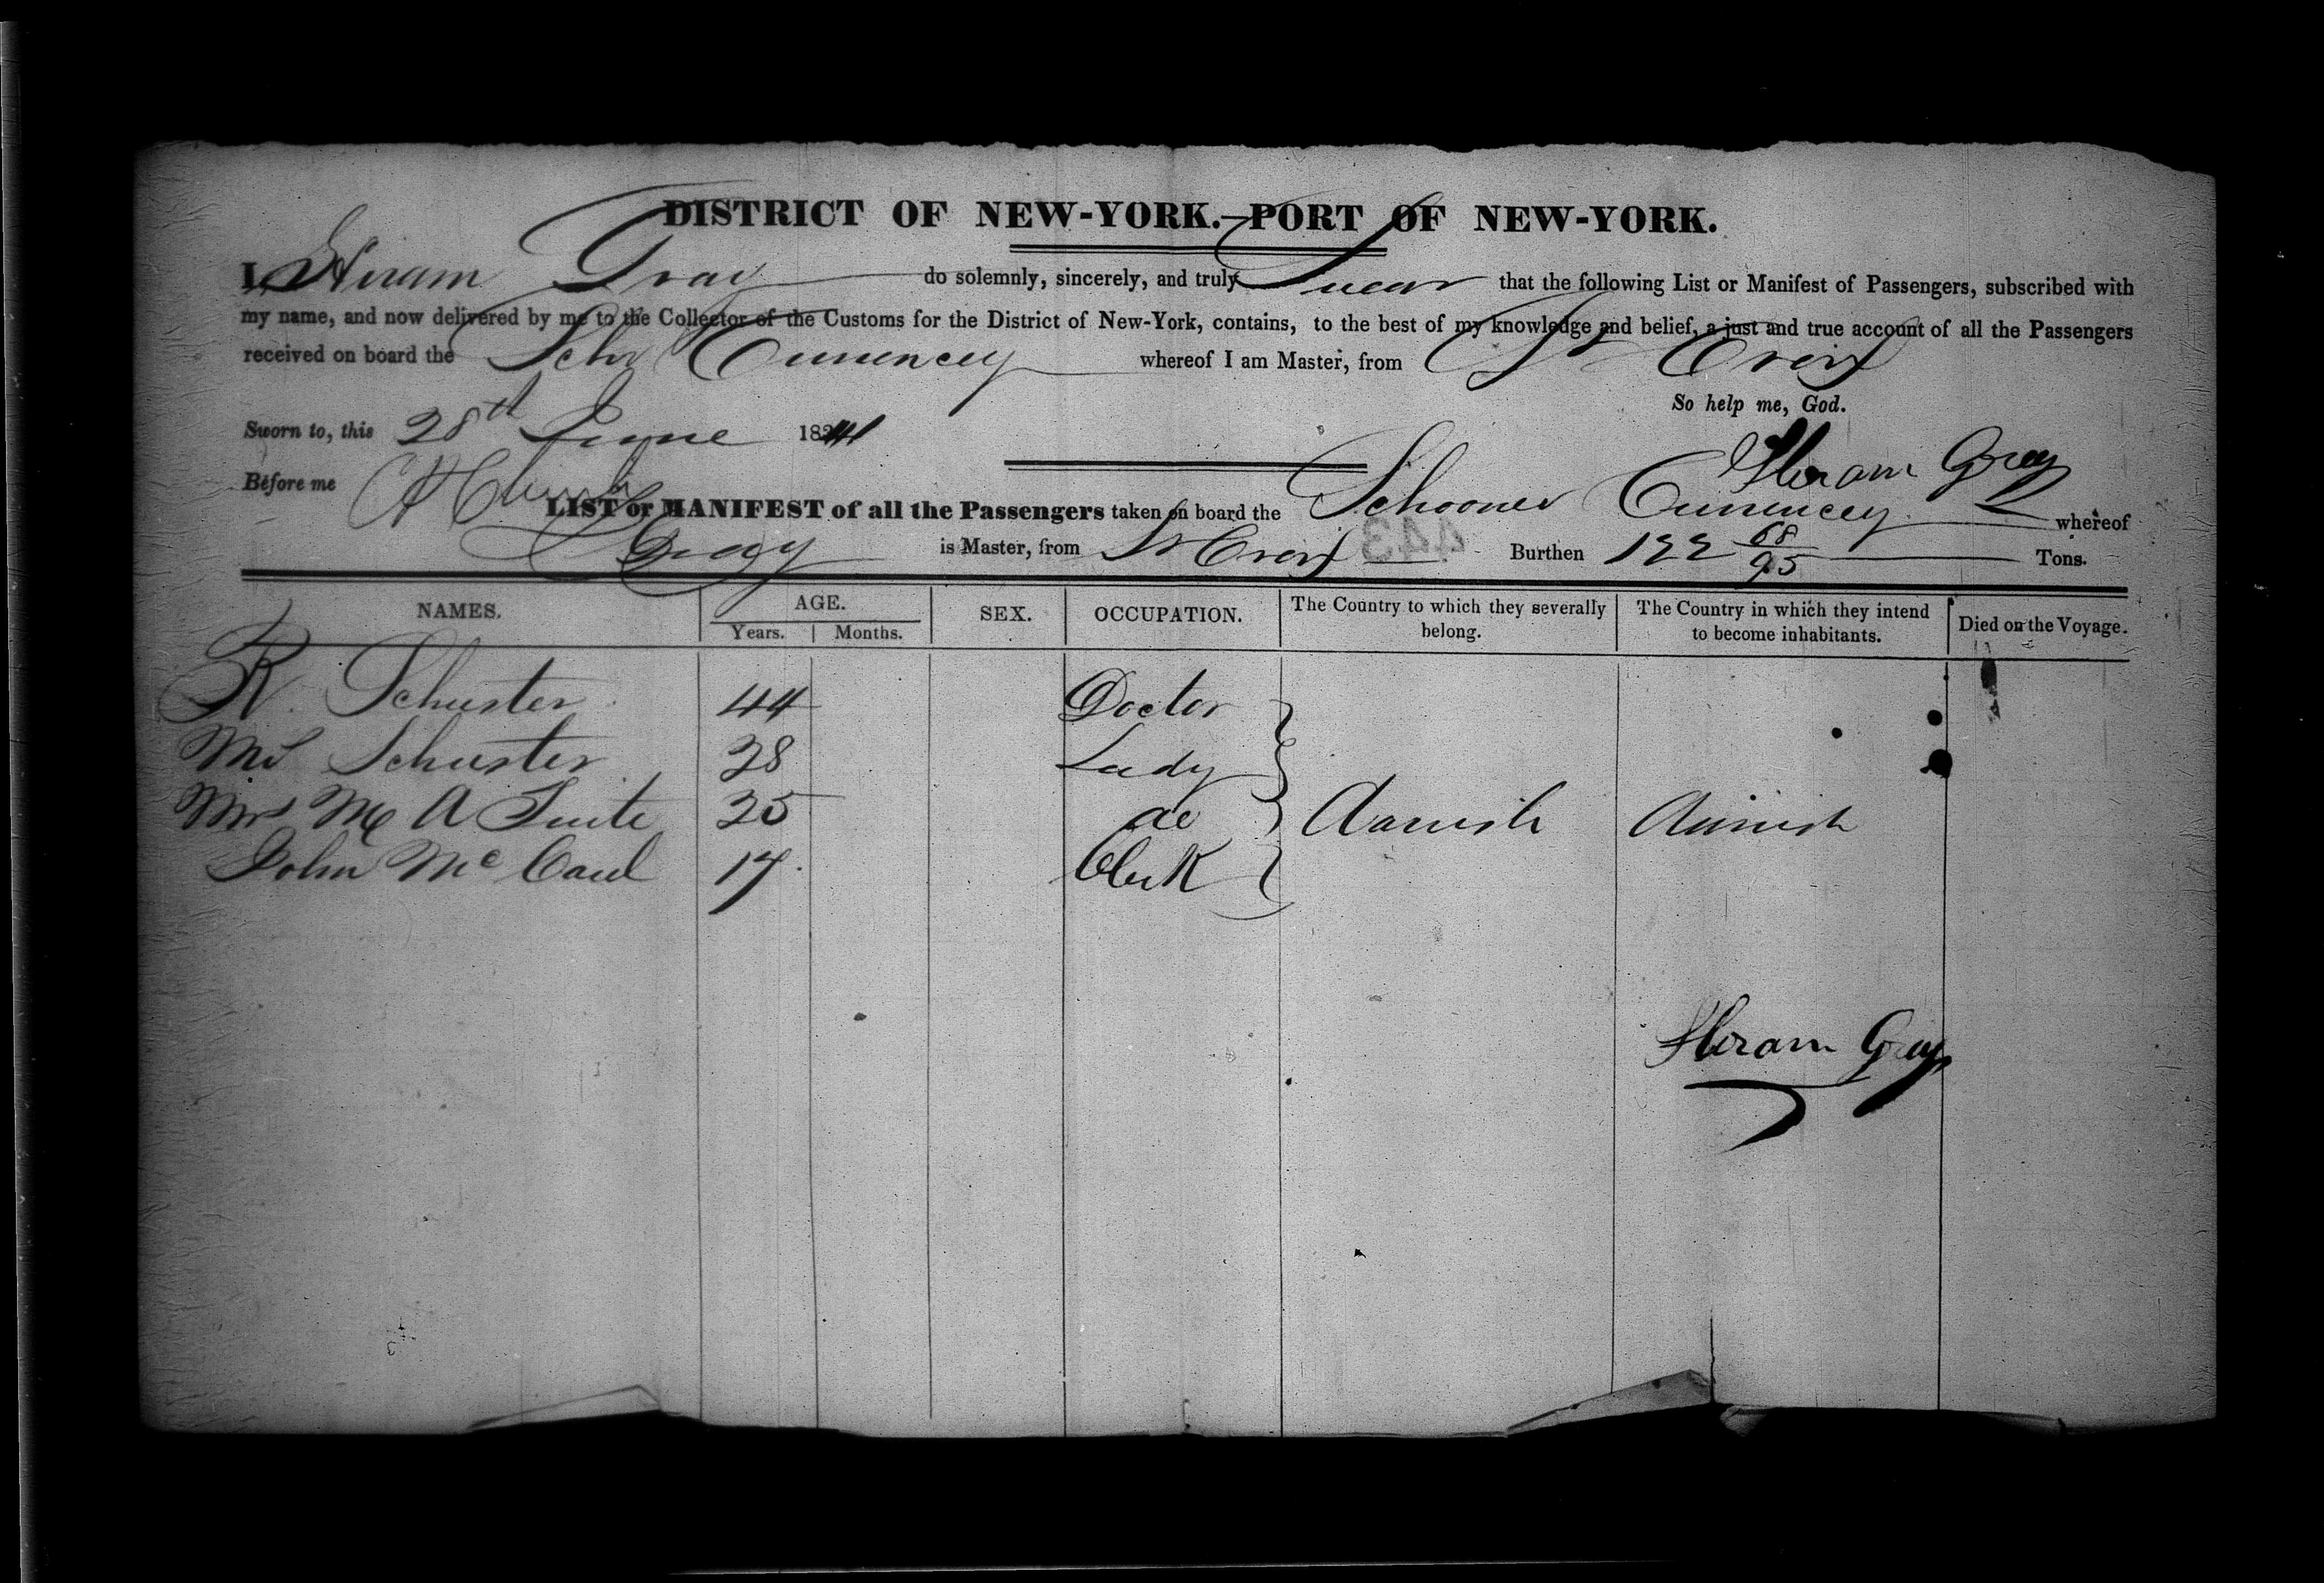 DISTRICT OF NEW-YORK.—PORT OF NEW-YORK.
I, Hiram Gray do solemnly, sincerely, and truly Swear that the following List or Manifest of Passengers, subscribed with
my name, and now delivered by me to the Collector of the Customs for the District of New-York, contains, to the best of my knowledge and belief, a just and true account of all the Passengers
received on board the Schr Currencey whereof I am Master, from St Croix
So help me, God.
Sworn to, this 28th June 1841
Hiram Gray
Before me
LIST or MANIFEST of all the Passengers taken on board the Schooner Currencey whereof
Gray is Master, from St Croix 443 Burthen 122 68/95 Tons.
NAMES. AGE. SEX. OCCUPATION. The Country to which they severally belong. The Country in which they intend to become inhabitants. Died on the Voyage.
Years. Months.
R. Schuster 44 Doctor
Mrs Schuster 28 Lady
Mrs M A Suite 25 do Danish Danish
John Mc Caul 17 Clerk
Hiram Gray